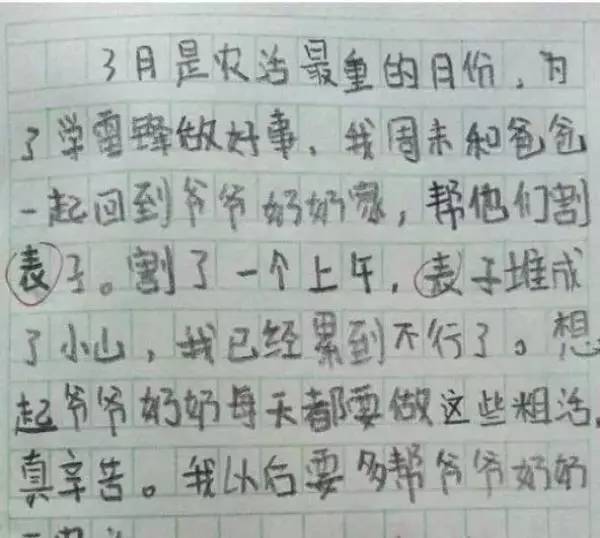 3月是农活最重的月份，为
了学雷锋做好事，我周末和爸爸
一起回到爷爷奶奶家，帮他们割
表子。割了一个上午，表子堆成
了小山，我已经累到不行了。想
起爷爷奶奶每天都要做这些粗活，
真辛告。我以后要多帮爷爷奶奶